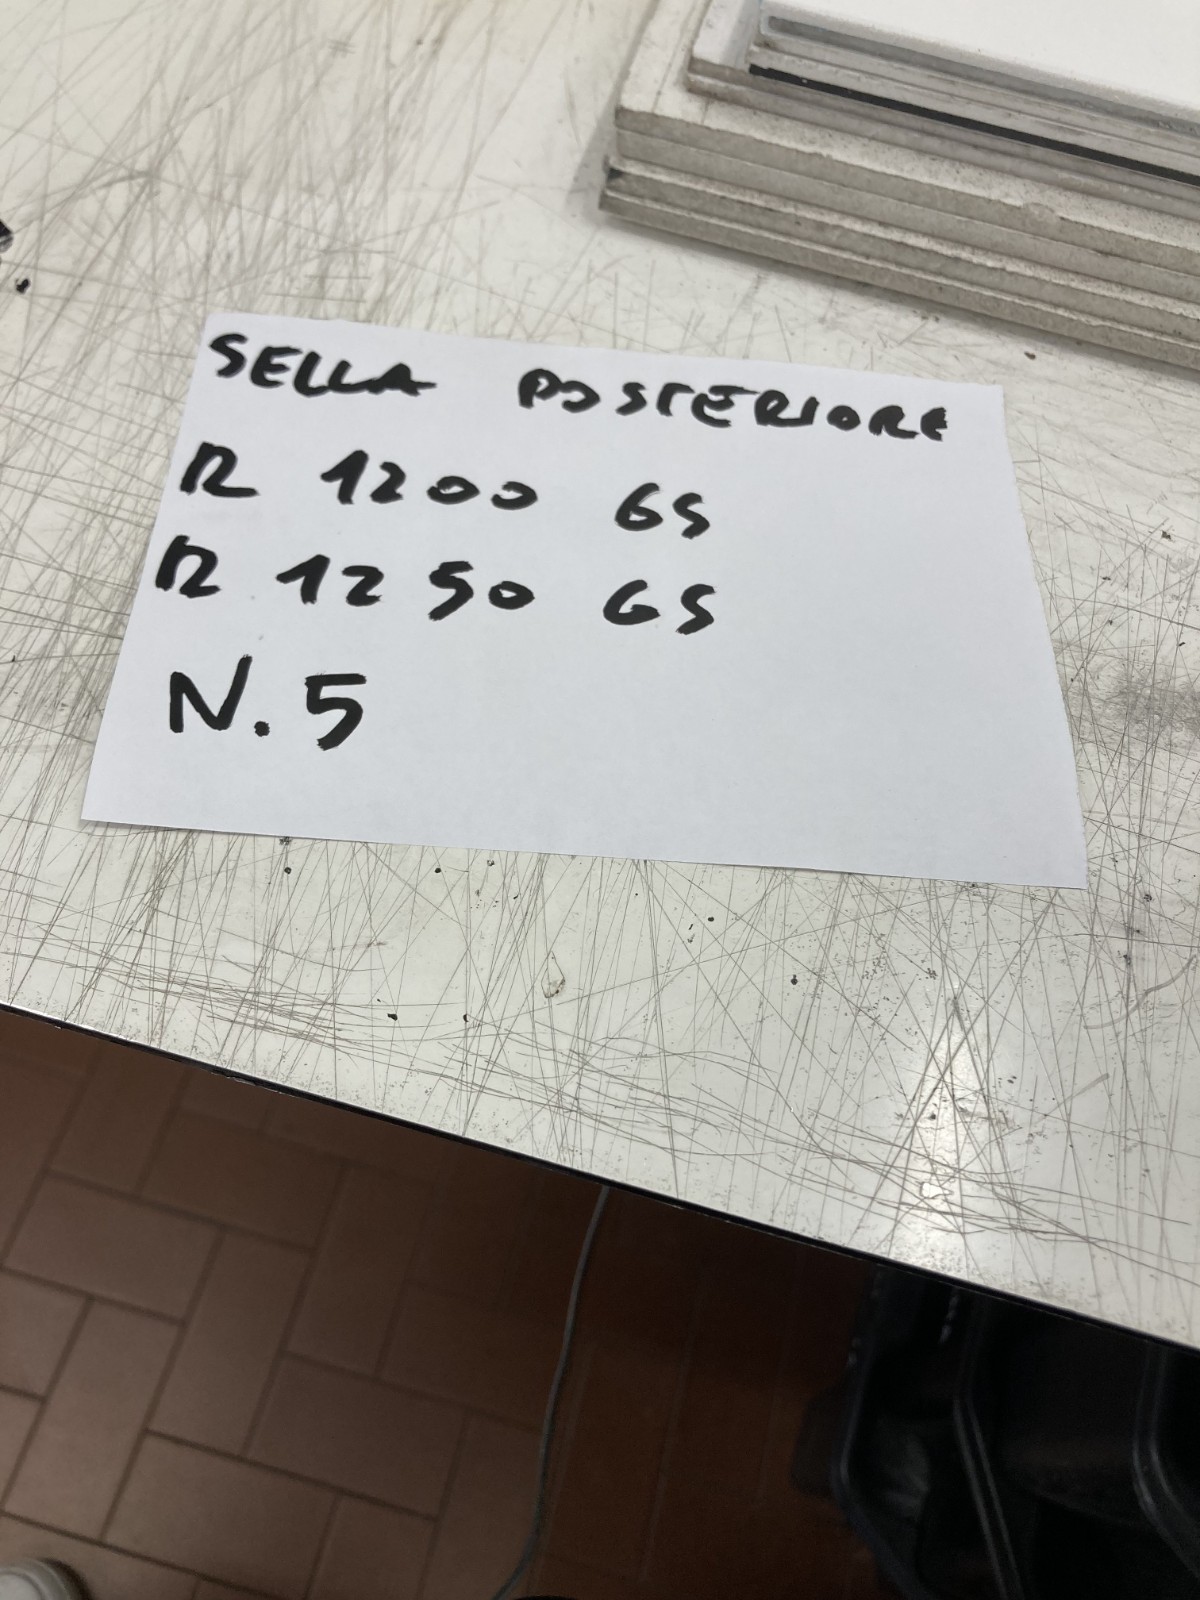 SELLA POSTERIORE
R 1200 GS
R 1250 GS
N.5